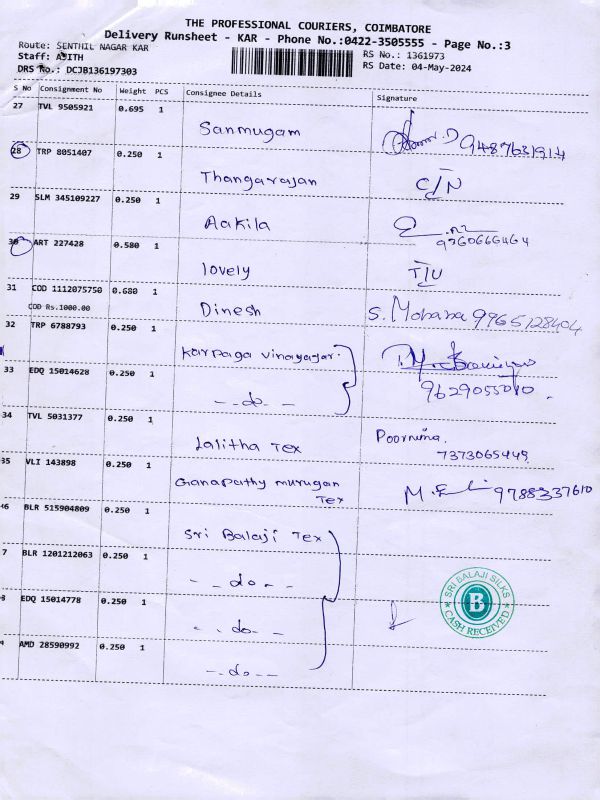 THE PROFESSIONAL COURIERS, COIMBATORE
Delivery Runsheet - KAR - Phone No.:0422-3505555 - Page No.:3
Route: SENTHIL NAGAR KAR
RS No.: 1361973
Staff: AJITH
RS Date: 04-May-2024
DRS No.: DCJB136197303
S No Consignment No Weight PCS Consignee Details Signature
27 TVL 9505921 0.695 1
Sanmugam 9487631914
28 TRP 8051407 0.250 1
Thangarajan C/N
29 SLM 345109227 0.250 1
Aakila
9360666464
30 ART 227428 0.580 1
lovely I/U
31 COD 1112075750 0.680 1
COD Rs.1000.00
Dinesh S. Mohana 9965128404
32 TRP 6788793 0.250 1
Karpaga vinayagar.
33 EDQ 15014628 0.250 1
9629055010.
- - do - -
34 TVL 5031377 0.250 1
Lalitha Tex Poornima.
7373065449.
35 VLI 143898 0.250 1
Ganapathy murugan Tex M. 9788337610
46 BLR 515904809 0.250 1
Sri Balaji Tex
7 BLR 1201212063 0.250 1
- - do - -
SRI BALAJI SILKS
B
CASH RECEIVED
3 EDQ 15014778 0.250 1
- - do - -
AMD 28590992 0.250 1
- - do - -